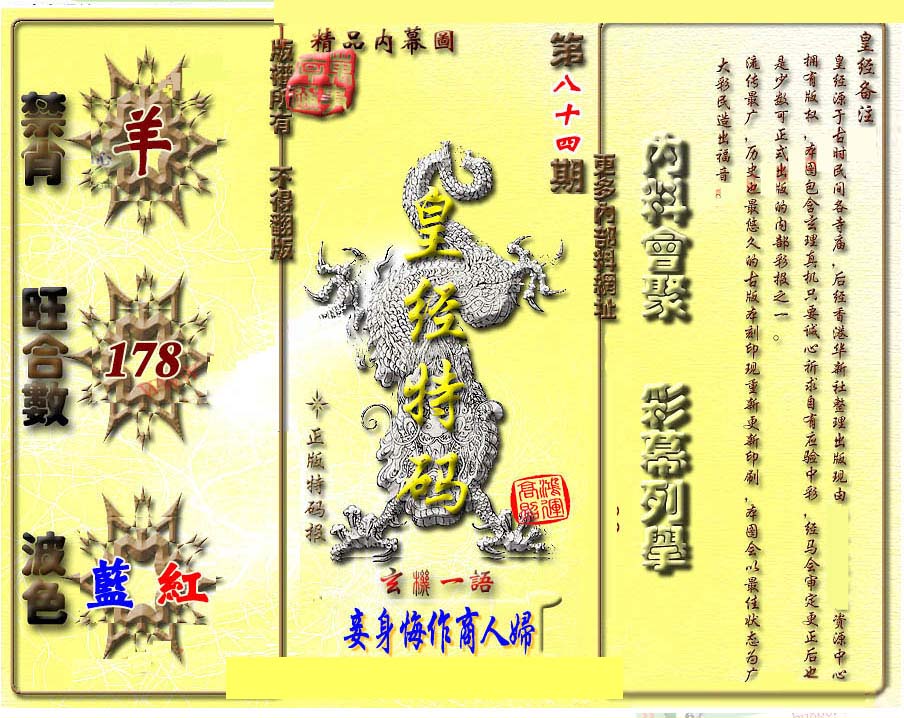 皇经备注
皇经源于古时民间各寺庙，后经香港华新社整理出版现由
资源中心
拥有版权，本图包含玄理真机只要诚心祈求自有应验中彩，经马会审定更正后也
是少数可正式出版的内部彩报之一。
流传最广，历史也最悠久的古版本刻印现重新更新印刷，本图会以最佳状态为广
大彩民造出福音
內料會聚
彩幕列舉
更多內部料網址
精品内幕圖
第八十四期
版權所有
不得翻版
皇经特码
正版特码报
鴻運
高照
玄機一語
妾身悔作商人婦
禁肖
羊
旺合數
178
波色
藍
紅